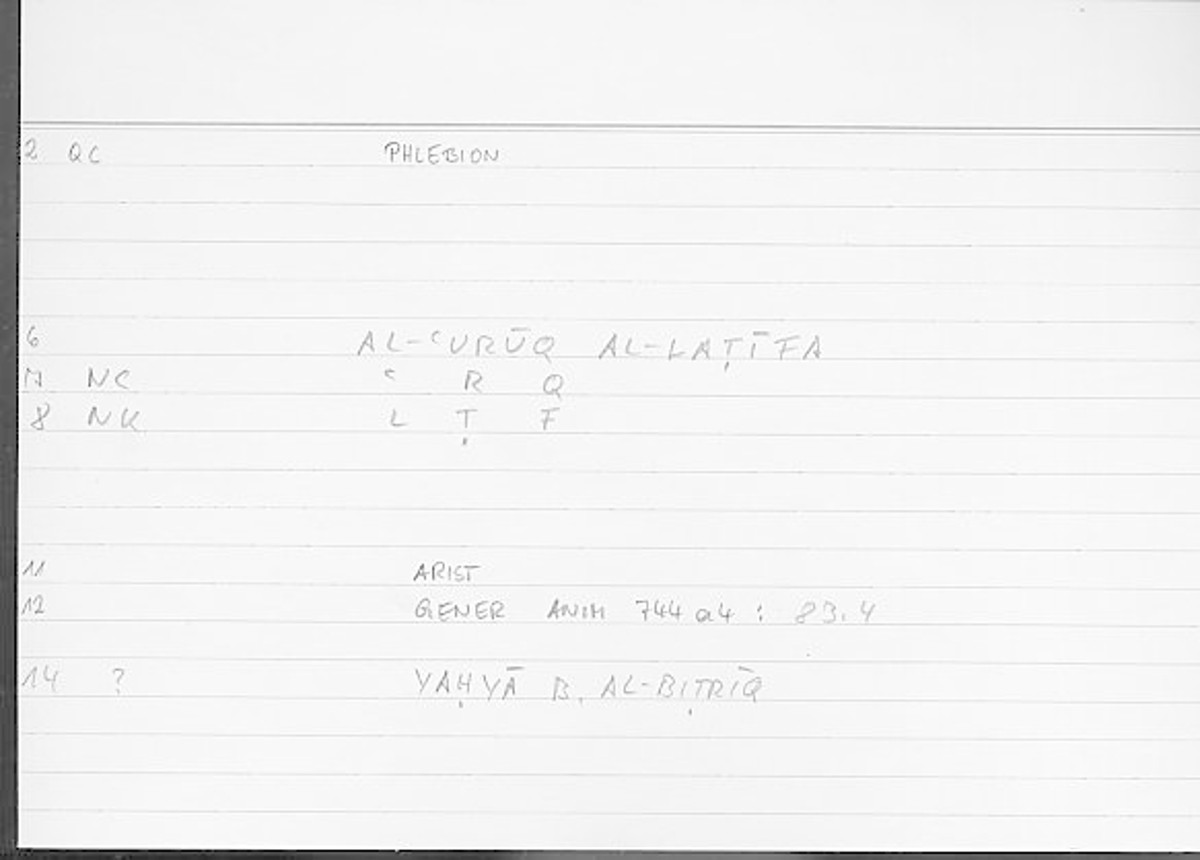 2 QC PHLEBION
6 AL-ʿURŪQ AL-LAṬĪFA
7 NC ʿ R Q
8 NK L Ṭ F
11 ARIST
12 GENER ANIM 744 a4 : 83.4
14 ? YAḤYĀ B. AL-BIṬRĪQ